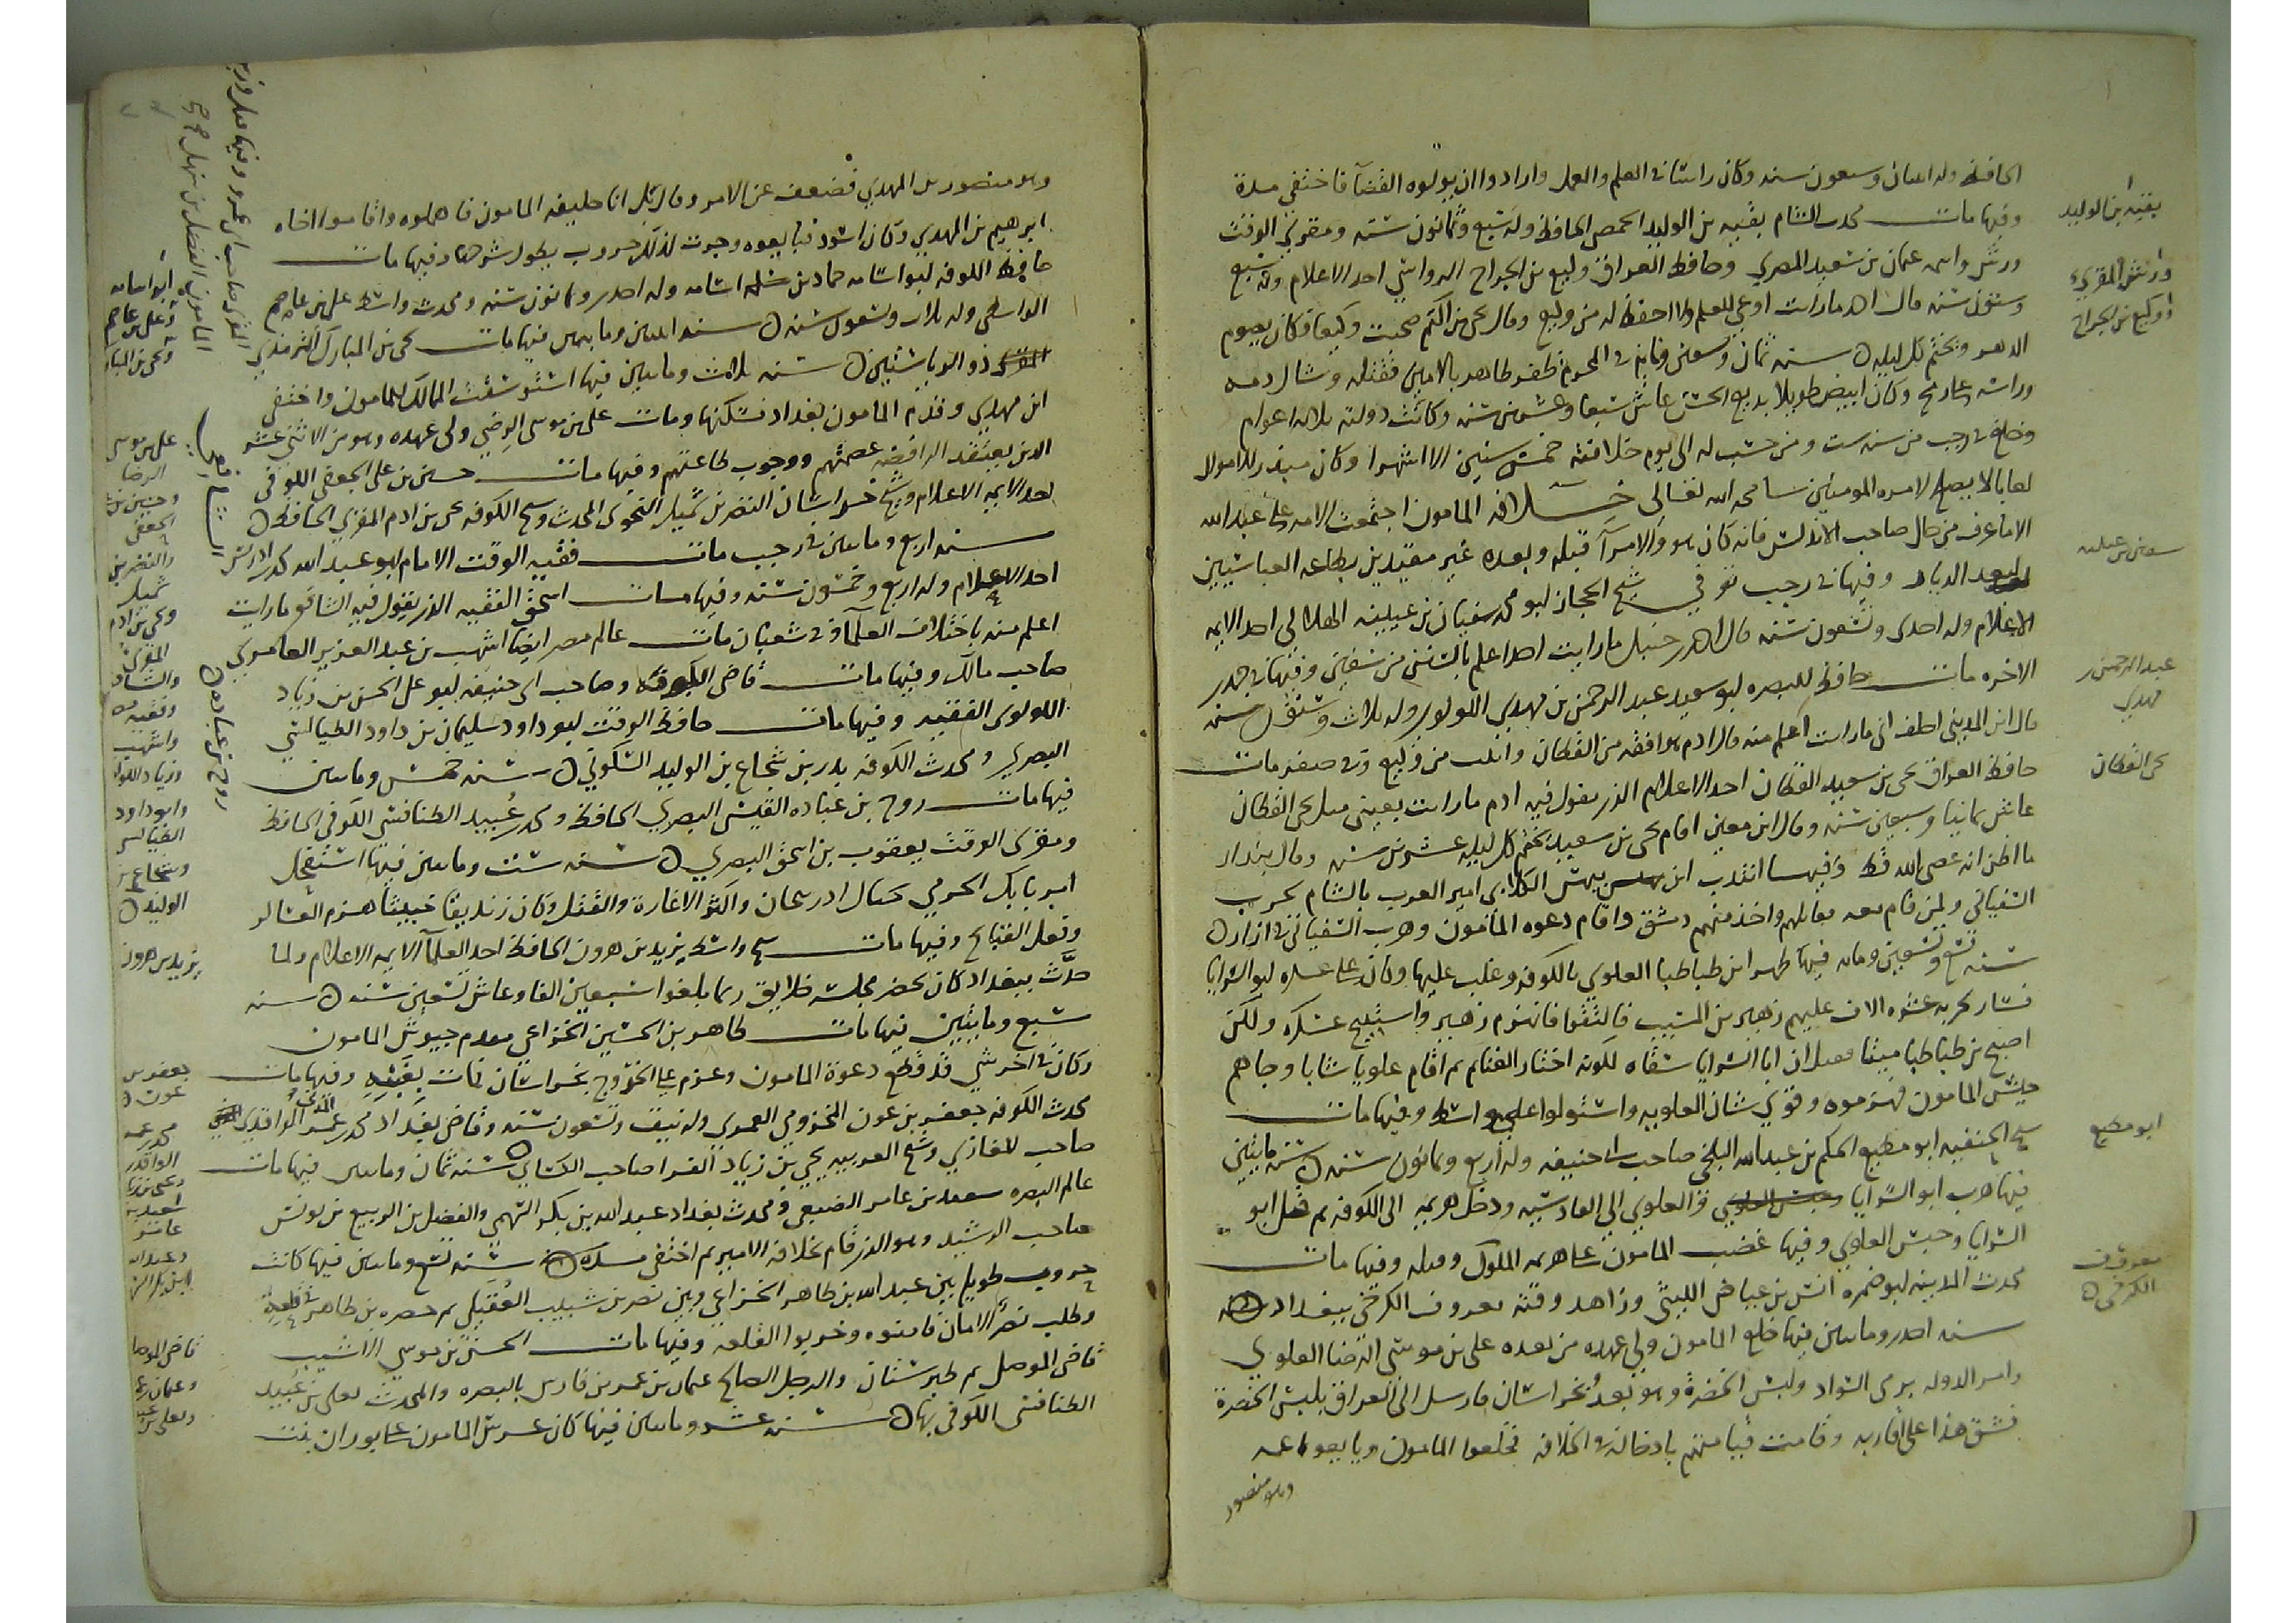 الحافظ وله اثنان وسبعون سنه وكان راسا في العلم والعمل وارادوا ان يولوه القضآ فاختفى مدة
وفيها مات محدث الشام بقيه بن الوليد الحمصي الحافظ وله سبع وثمانون سنه ومقرئ الوقت
ورش واسمه عثمان بن سعيد المصري وحافظ العراق وكيع بن الجراح الرواسي احد الاعلام وله سبع
وستون سنه قال احمد ما رايت اوعى للعلم ولا احفظ له من وكيع وقال يحيى بن اكثم صحبت وكيعا فكان يصوم
الدهر ويختم كل ليله ٥ سنه ثمان وتسعين ومايه في المحرم ظفر طاهر بالامين فقتله وشال دمه
وراسه على رمح وكان ابيض طويلا بديع الحسن عاش سبعا وعشرين سنه وكانت دولته ثلاثه اعوام
وخلع في رجب من سنه ست ومن حسب له الى يوم خلافته خمس سنين الا اشهرا وكان مبذر للاموال
لعابا لا يصلح لامره المومنين سامحه الله تعالى خلافه المامون اجتمعت الامه على عبد الله
الا ما عرف من حال صاحب الاندلس فانه كان هو والامرآ قبله وبعده غير مقيدين بطاعه العباسيين
لبعد الديار وفيها في رجب توفي شيخ الحجاز ابو محمد سفيان بن عيينه الهلالي احد الايمه
الاعلام وله احدى وتسعون سنه قال احمد بن حنبل ما رايت احدا اعلم بالسنن من سفين وفيها في جمادى
الاخره مات حافظ البصره ابو سعيد عبد الرحمن بن مهدي اللولوي وله ثلاث وستون سنه
قال ابن المديني احلف اني ما رايت اعلم منه قال احمد هو افقه من القطان واثبت من وكيع وفي صفر مات
حافظ العراق يحيى بن سعيد القطان احد الاعلام الذي يقول فيه احمد ما رايت بعيني مثل يحيى القطان
عاش ثمانيا وسبعين سنه وقال ابن معين اقام يحيى بن سعيد يختم كل ليله عشرين سنه وقال بندار
ما اظن انه عصى الله قط وفيها انتدب ابن بيهس الكلابي امير العرب بالشام لحرب
السفياني ولمن قام معه فقاتلهم واخذ منهم دمشق واقام دعوه المامون وهرب السفياني في ازار ٥
سنه تسع وتسعين ومايه فيها ظهر ابن طباطبا العلوي بالكوفه وغلب عليها وكان على عسكره ابو السرايا
فسار لحربه عشره الاف عليهم زهير بن المسيب فالتقوا فانهزم زهير واستبيح عسكره ولكن
اصبح بن طباطبا ميتا فقيل ان ابا السرايا سقاه لكونه اختار الغنايم ثم اقام علويا شابا وجاهم
جيش المامون فهزموه وقوي شان العلويه واستولوا على واسط وفيها مات
شيخ الحنفيه ابو مطيع الحكم بن عبد الله البلخي صاحب ابي حنيفه وله اربع وثمانون سنه ٥ سنه مايتين
فيها هرب ابو السرايا والعلوي الى القادسيه ودخل هرثمه الى الكوفه ثم قتل ابو
السرايا وحبس العلوي وفيها غضب المامون على هرثمه الملوك وقتله وفيها مات
محدث المدينه ابو ضمره انس بن عياض الليثي وزاهد وقته معروف الكرخي ببغداد ٥
سنه احدى ومايتين فيها خلع المامون ولي عهده من بعده علي بن موسى الرضا العلوي
وامر الدوله برمي السواد ولبس الخضرة وهو بعد بخراسان فارسل الى العراق بلبس الخضرة
فشق هذا على اقاربه وقامت قيامتهم بادخاله في الخلافه فخلعوا المامون وبايعوا عمه
وهو منصور
بقيه بن الوليد
ورش المقرئ
ووكيع بن الجراح
سفين بن عيينه
عبد الرحمن بن
مهدي
يحيى القطان
ابو مطيع
معروف
الكرخي ٥
وهو منصور بن المهدي فضعف عن الامر وقال بل انا خليفه المامون فاهملوه واقاموا اخاه
ابرهيم بن المهدي وكان اسود فبايعوه وجرت لذلك حروب يطول شرحها وفيها مات
حافظ الكوفه ابو اسامه حماد بن اسامه وله احدى وثمانون سنه ومحدث واسط علي بن عاصم
الواسطي وله ثلاث وتسعون سنه ٥ سنه اثنتين ومايتين فيها مات يحيى بن المبارك اليزيدي
ذو الرياستين ٥ سنه ثلاث ومايتين فيها استوسقت الممالك للمامون واختفى
ابن مهدي وقدم المامون بغداد فسكنها ومات علي بن موسى الرضي ولي عهده وهو من الاثني عشر
الذين يعتقد الرافضه عصمتهم ووجوب طاعتهم وفيها مات حسين بن علي الجعفي الكوفي
احد الايمه الاعلام وشيخ خراسان النضر بن شميل النحوي المحدث وشيخ الكوفه يحيى بن ادم المقرئ الحافظ ٥
سنه اربع ومايتين في رجب مات فقيه الوقت الامام ابو عبد الله محمد بن ادريس
احد الاعلام وله اربع وخمسون سنه وفيها مات اسحق الفقيه الذي يقول فيه الشافعي ما رايت
اعلم منه باختلاف العلمآ وفي شعبان مات عالم مصر ايضا اشهب بن عبد العزيز العامري
صاحب مالك وفيها مات قاضي الكوفه وصاحب ابي حنيفه ابو علي الحسن بن زياد
اللولوي الفقيه وفيها مات حافظ الوقت ابو داود سليمان بن داود الطيالسي
البصري ومحدث الكوفه بدر بن شجاع بن الوليد السكوني ٥ سنه خمس ومايتين
فيها مات روح بن عباده القيسي البصري الحافظ ومحمد بن عبيد الطنافسي الكوفي الحافظ
ومقرئ الوقت يعقوب بن اسحق البصري ٥ سنه ست ومايتين فيها استفحل
امر بابك الخرمي بجبال اذربيجان واكثر الاغارة والقتل وكان زنديقا خبيثا هزم العساكر
وفعل القبايح وفيها مات شيخ واسط يزيد بن هرون الحافظ احد العلمآ الايمه الاعلام ولما
حدث ببغداد كان يحضر مجلسه خلايق ربما بلغوا سبعين الفا وعاش تسعين سنه ٥ سنه
سبع ومايتين فيها مات طاهر بن الحسين الخزاعي مقدم جيوش المامون
وكان في اخر شي قد قطع دعوة المامون وعزم على الخروج بخراسان فمات بغتة وفيها مات
محدث الكوفه جعفر بن عون المخزومي العمري وله نيف وتسعون سنه وقاضي بغداد محمد بن عمر الواقدي المدني
صاحب المغازي وشيخ العربيه يحيى بن زياد الفرا صاحب الكسائي ٥ سنه ثمان ومايتين فيها مات
عالم البصره سعيد بن عامر الضبعي ومحدث بغداد عبد الله بن بكر السهمي والفضل بن الربيع بن يونس
صاحب الرشيد وهو الذي قام بخلافه الامين ثم اختفى مده ٥ سنه تسع ومايتين فيها كانت
حروب طويله بين عبد الله بن طاهر الخزاعي وبين نصر بن شبيب العقيلي ثم حصره بن طاهر في قلعه
وطلب نصر الامان فامنوه وخربوا القلعه وفيها مات الحسن بن موسى الاشيب
قاضي الموصل ثم طبرستان والرجل الصالح عثمان بن عمر بن فارس بالبصره والمحدث يعلى بن عبيد
الطنافسي الكوفي بها ٥ سنه عشر ومايتين فيها كان عرس المامون على بوران بنت
المقرئ صاحب ابي عمرو وفيها
المامون الفضل بن سهل
ابو اسامه
وعلي بن عاصم
ويحيى بن المبارك
علي بن موسى
الرضا
وحسين بن
الجعفي
والنضر بن
شميل
ويحيى بن ادم
المقرئ
والشافعي
واشهب
وزياد اللولوي
وابو داود
الطيالسي
وشجاع بن
الوليد ٥
الشافعي
روح بن عباده ٥
يزيد بن هرون
جعفر بن
عون ٥
محمد بن عمر
الواقدي
سعيد بن
عامر
وعبد الله
بن بكر
قاضي الموصل
وعثمان بن عمر
ويعلى بن عبيد